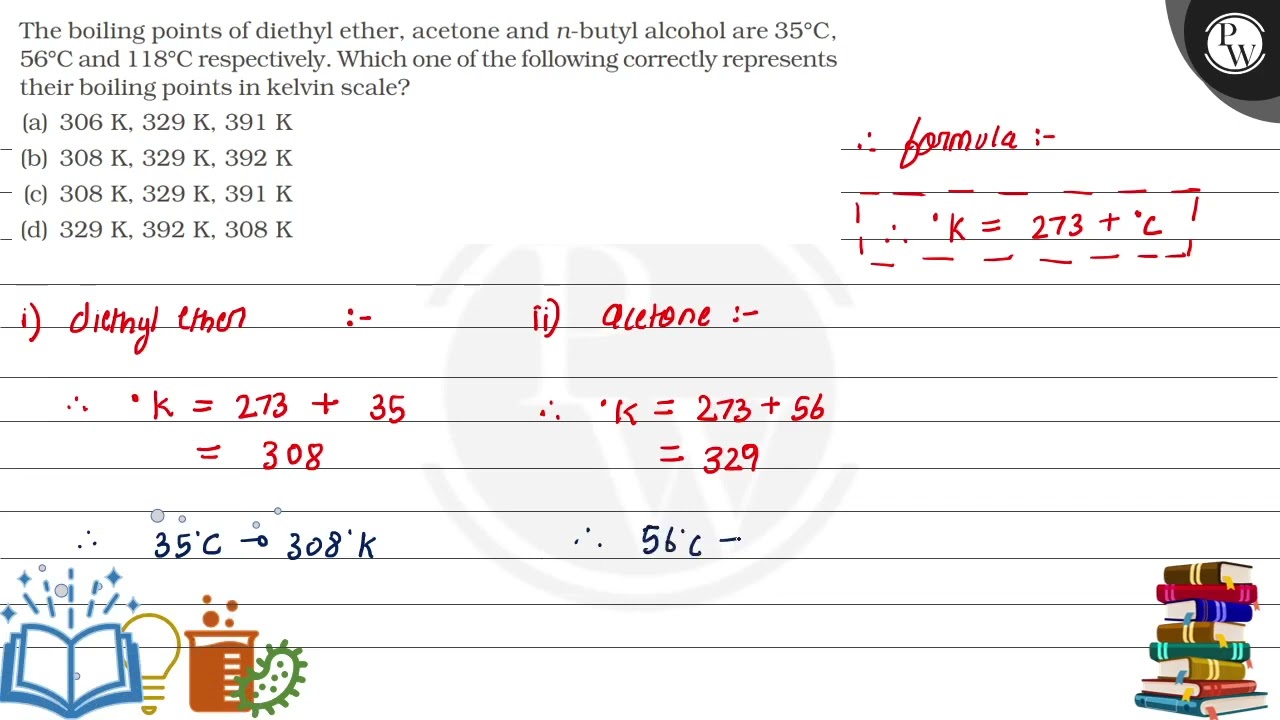 The boiling points of diethyl ether, acetone and n-butyl alcohol are 35°C,
56°C and 118°C respectively. Which one of the following correctly represents
their boiling points in kelvin scale?
(a) 306 K, 329 K, 391 K
(b) 308 K, 329 K, 392 K
(c) 308 K, 329 K, 391 K
(d) 329 K, 392 K, 308 K
PW
∴ formula :-
∴ °K = 273 + °C
i) diethyl ether :-
∴ °K = 273 + 35
= 308
∴ 35°C → 308°K
ii) acetone :-
∴ °K = 273 + 56
= 329
∴ 56°C -
PW